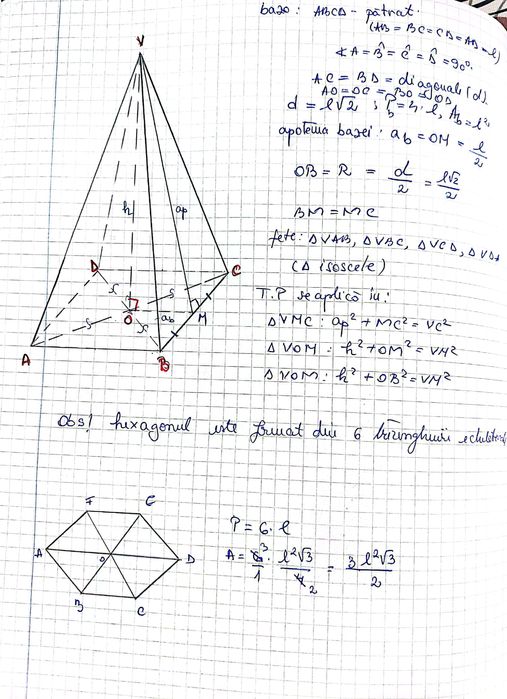 bazo: ABCD - pătrat.
(AB = BC = CD = AD = l)
∢A = B̂ = Ĉ = D̂ = 90°.
AC = BD = diagonale (d).
AO = OC = BO = OD
d = l√2 ; P_b = 4·l, A_b = l²
apotema bazei: a_b = OM = l/2
OB = R = d/2 = l√2/2
BM = MC
fețe: ΔVAB, ΔVBC, ΔVCD, ΔVDA
(Δ isoscele)
T.P se aplică în:
ΔVMC: ap² + MC² = VC²
ΔVOM: h² + OM² = VM²
ΔVOM: h² + OB² = VM²
V
h
ap
D
C
O
a_b
M
A
B
Obs! hexagonul este format din 6 triunghiuri echilaterale
F E
A O D
B C
P = 6·l
A = 6³/1 · l²√3/4₂ = 3l²√3/2